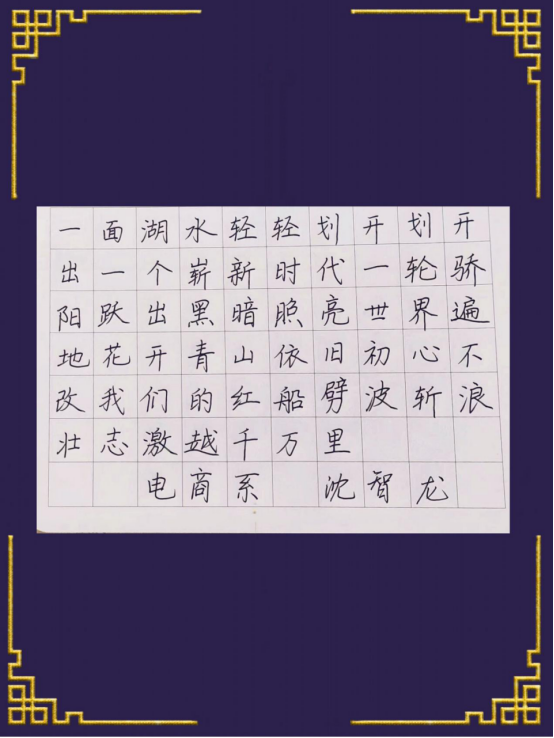 一面湖水轻轻划开划开
出一个崭新时代一轮骄
阳跃出黑暗照亮世界遍
地花开青山依旧初心不
改我们的红船劈波斩浪
壮志激越千万里
电商系 沈智龙